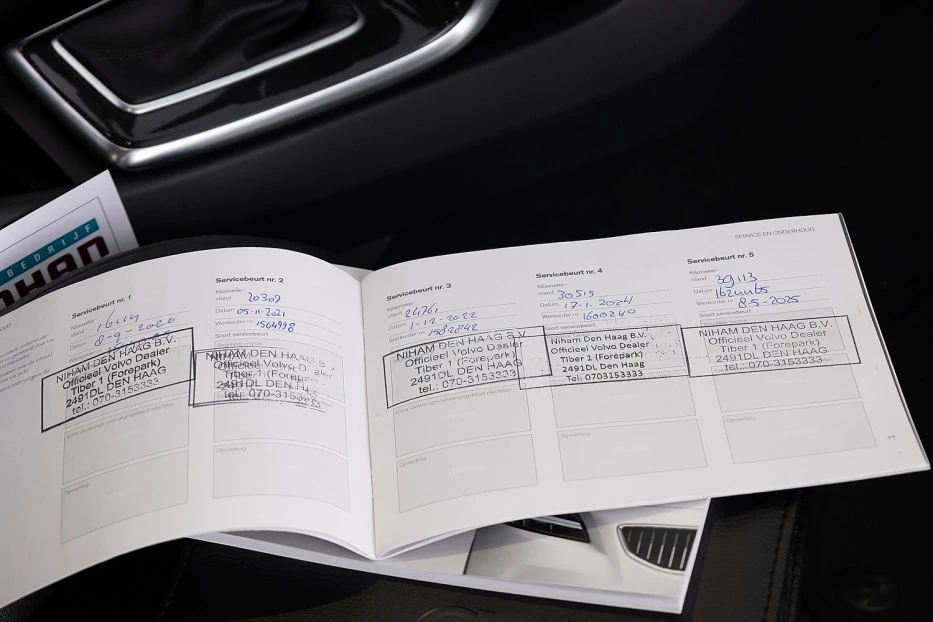 BEDRIJF
SERVICE EN ONDERHOUD
Servicebeurt nr. 1
Kilometer-
stand
Datum 8-9-2020
Werkorder nr
NIHAM DEN HAAG B.V.
Officieel Volvo Dealer
Tiber 1 (Forepark)
2491DL DEN HAAG
tel.: 070-3153333
Opmerking
Servicebeurt nr. 2
Kilometer-
stand 20309
Datum 05-11-2021
Werkorder nr 1564998
Soort servicebeurt
NIHAM DEN HAAG
Officieel Volvo Dealer
Tiber 1 (Forepark)
2491DL DEN H
tel.: 070-315
Opmerking
Servicebeurt nr. 3
Kilometer-
stand 24761
Datum 1-12-2022
Werkorder nr 1582842
NIHAM DEN HAAG B.V.
Officieel Volvo Dealer
Tiber 1 (Forepark)
2491DL DEN HAAG
tel.: 070-3153333
Opmerking
Servicebeurt nr. 4
Kilometer-
stand 30515
Datum 17-1-2024
Werkorder nr 1600240
Soort servicebeurt
NIHAM DEN HAAG B.V.
Officieel Volvo Dealer
Tiber 1 (Forepark)
2491DL Den Haag
Tel: 0703153333
Opmerking
Servicebeurt nr. 5
Kilometer-
stand 39113
Datum
Werkorder nr 8-5-2025
Soort servicebeurt
NIHAM DEN HAAG B.V.
Officieel Volvo Dealer
Tiber 1 (Forepark)
2491DL DEN HAAG
tel.: 070-3153333
Opmerking